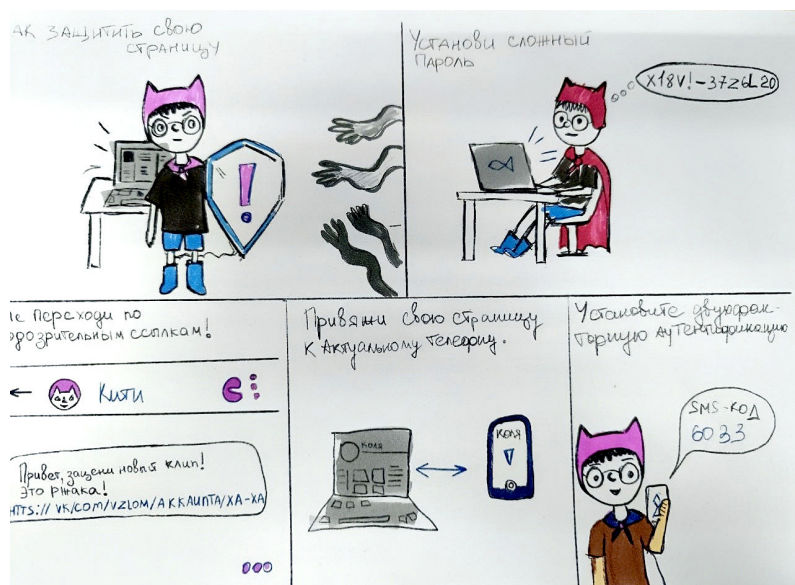 АК ЗАЩИТИТЬ СВОЮ
СТРАНИЦУ
УСТАНОВИ СЛОЖНЫЙ
ПАРОЛЬ
X18V!-37Z6L20
!
Е ПЕРЕХОДИ ПО
ДОЗРИТЕЛЬНЫМ ССЫЛКАМ!
КИТИ
Привет, зацени новый клип!
ЭТО РЖАКА!
HTTS://VK/COM/VZLOM/AKKAUNTA/XA-XA
ПРИВЯЖИ СВОЮ СТРАНИЦУ
К АКТУАЛЬНОМУ ТЕЛЕФОНУ.
КОЛЯ
КОЛЯ
УСТАНОВИТЕ ДВУХФАК-
ТОРНУЮ АУТЕНТИФИКАЦИЮ
SMS-КОД
6033